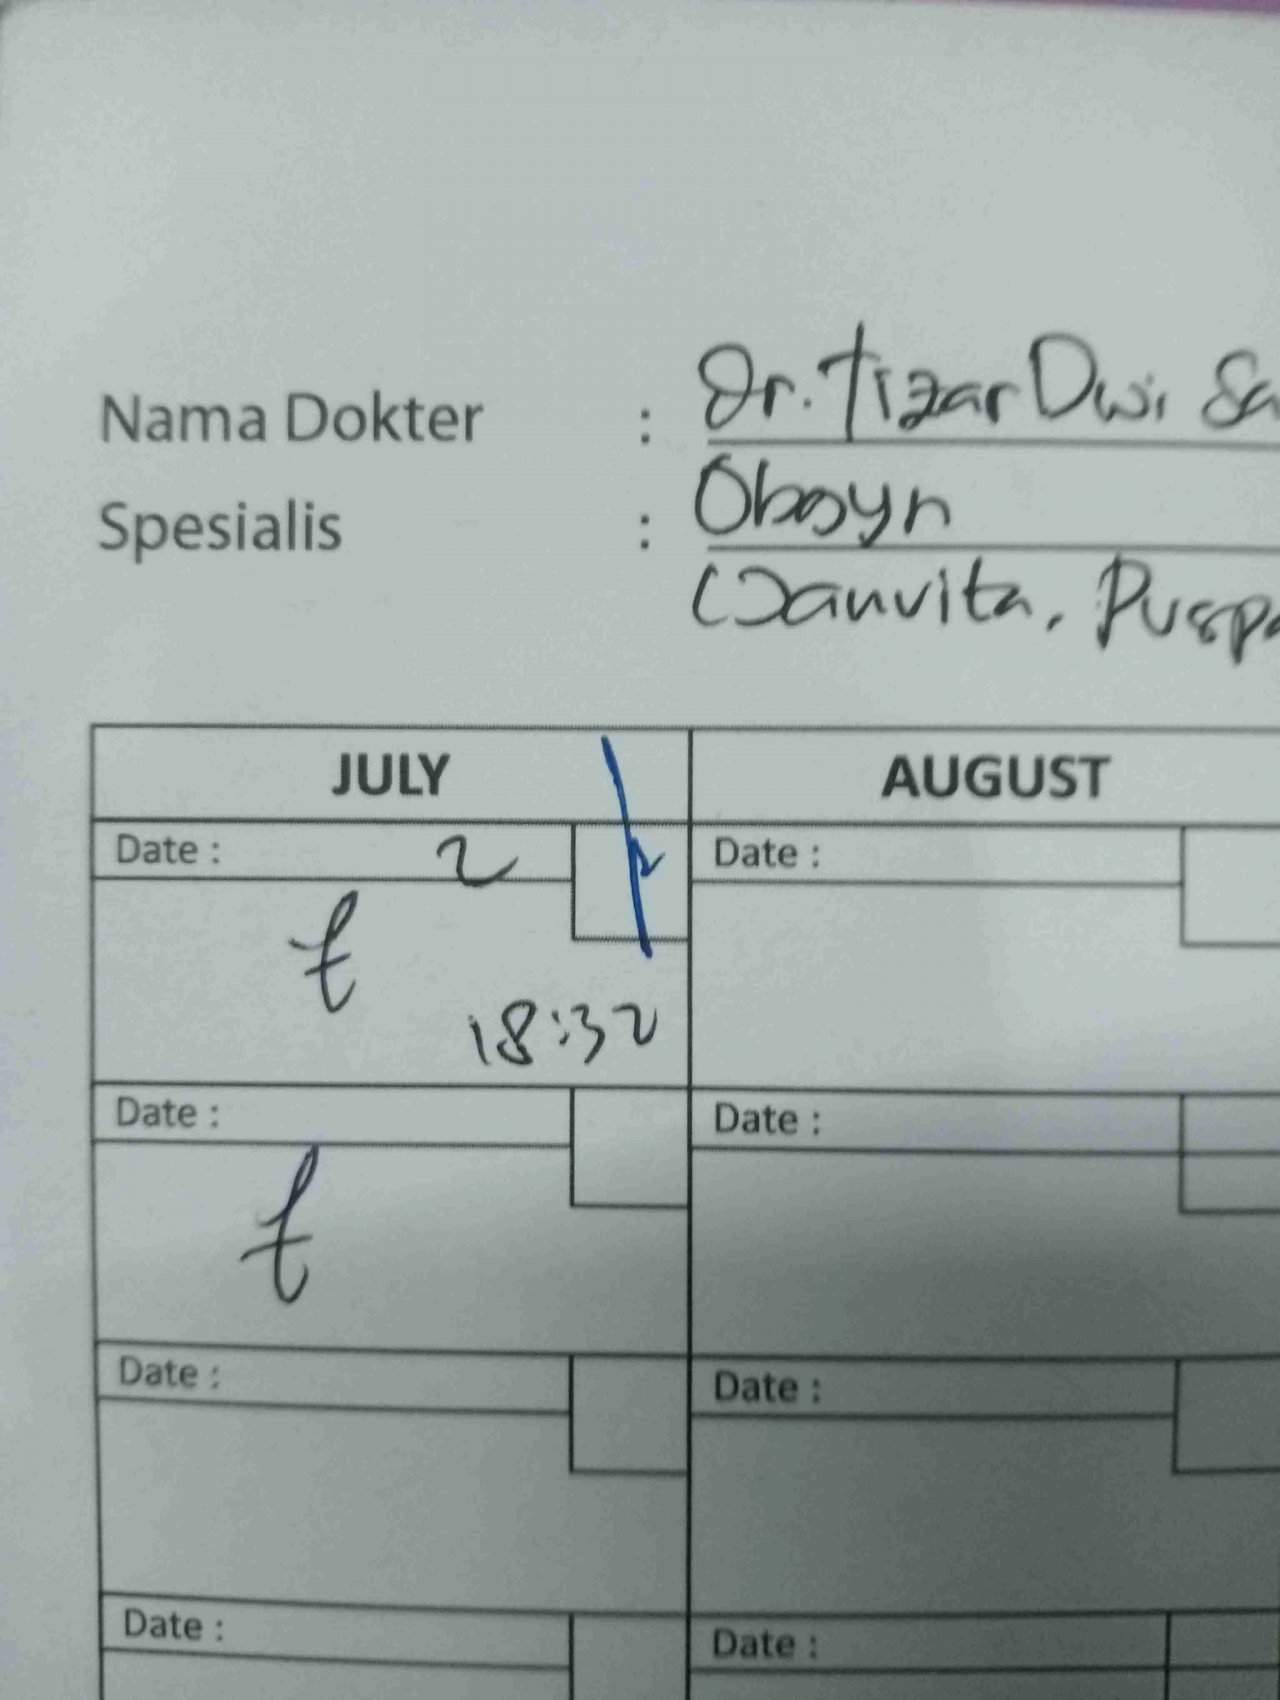 Nama Dokter : Dr. Tizar Dwi Sa
Spesialis : Obgyn
(Janvita, Puspa
JULY AUGUST
Date : 2 Date :
18:32
Date : Date :
Date : Date :
Date : Date :